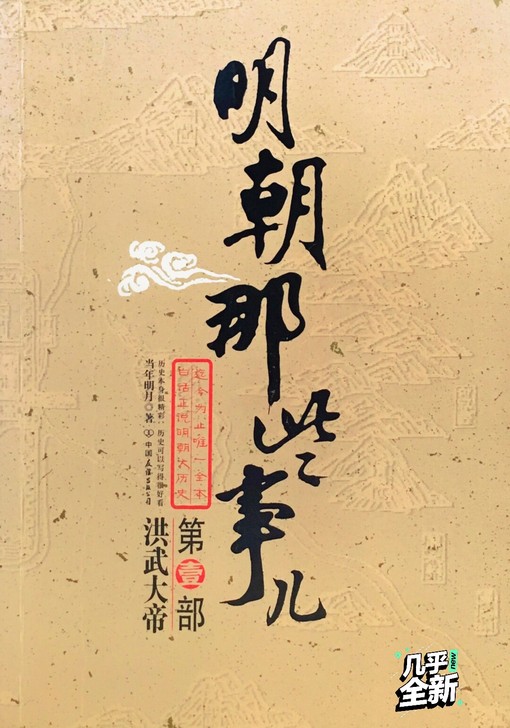 明朝那些事儿
迄今为止唯一全本
白话正说明朝大历史
历史本身很精彩,历史可以写得很好看
当年明月◎著
中国友谊出版公司
第壹部
洪武大帝
几乎
全新
new